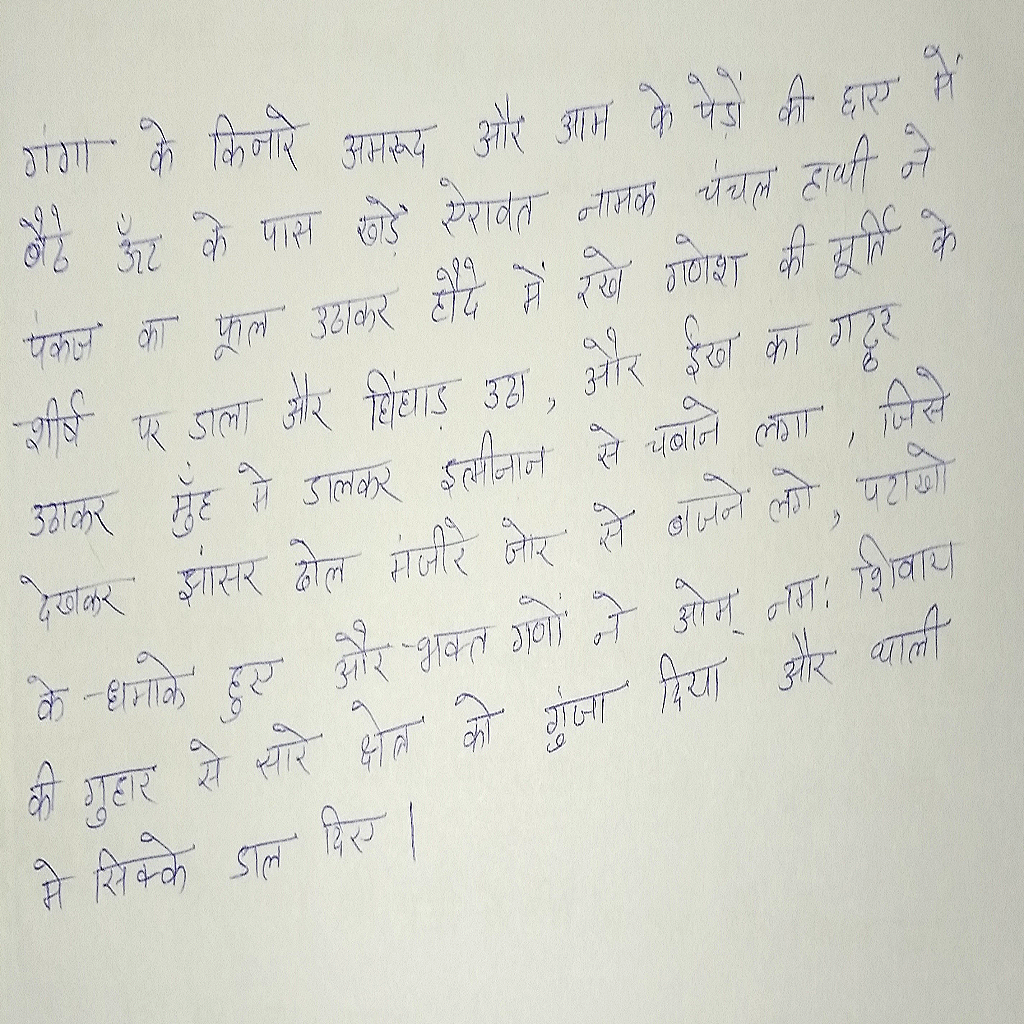 गंगा के किनारे अमरूद और आम के पेड़ों की छाए में
बैठे ऊँट के पास खड़े ऐरावत नामक चंचल हाथी ने
पंकज का फूल उठाकर हौदे में रखे गणेश की मूर्ति के
शीर्ष पर डाला और चिंघाड़ उठा, और ईख का गट्ठर
उठाकर मुँह मे डालकर इत्मीनान से चबाने लगा, जिसे
देखकर झांसर ढोल मंजीरे जोर से बाजने लगे, पटाखो
के धमाके हुए और भक्त गणों ने ओम् नम: शिवाय
की गुहार से सारे क्षेत्र को गुंजा दिया और थाली
मे सिक्के डाल दिए।